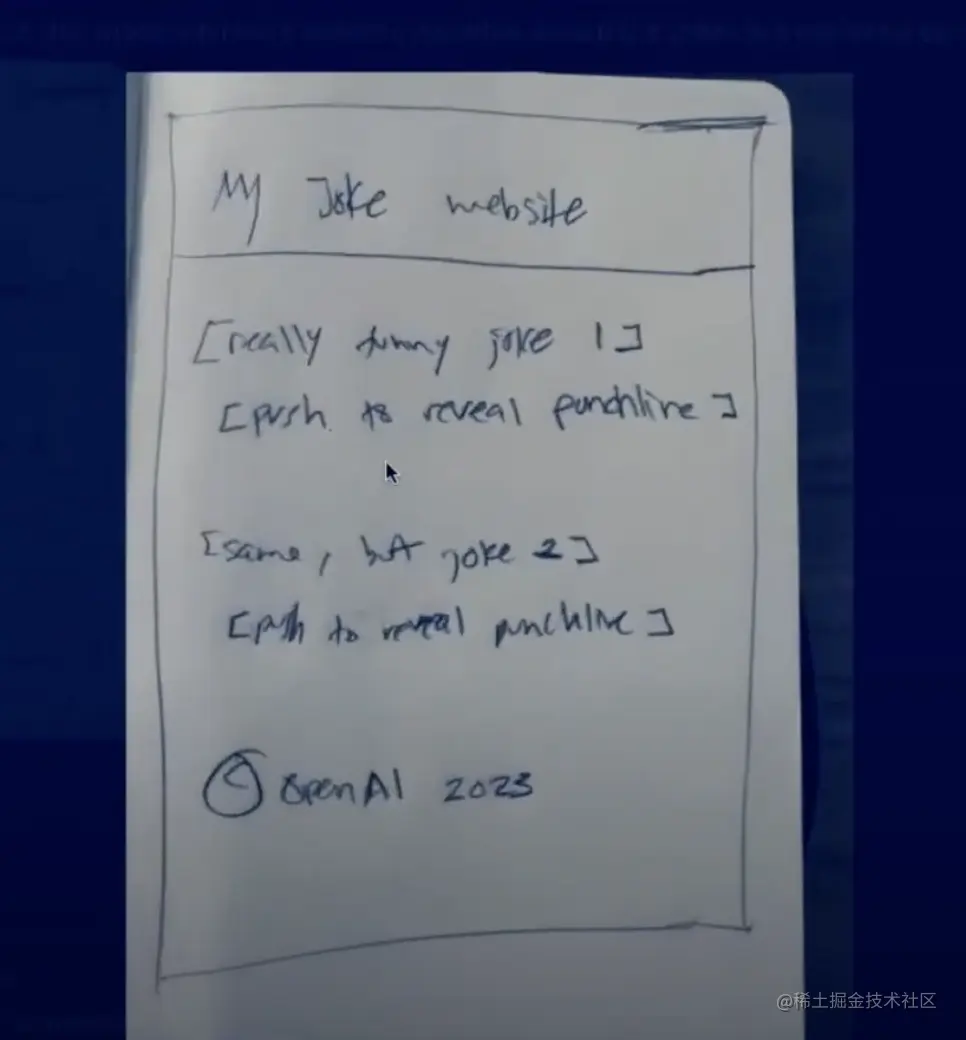 My Joke website
[really funny joke 1]
[push to reveal punchline]
[same, but joke 2]
[push to reveal punchline]
© OpenAI 2023
@稀土掘金技术社区